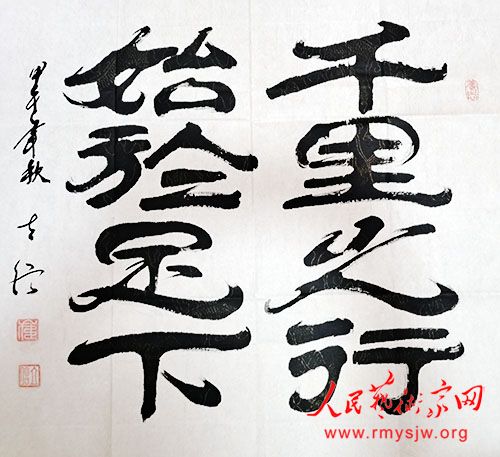 千里之行
始於足下
甲午年秋
人民藝術家网
www.rmysjw.org